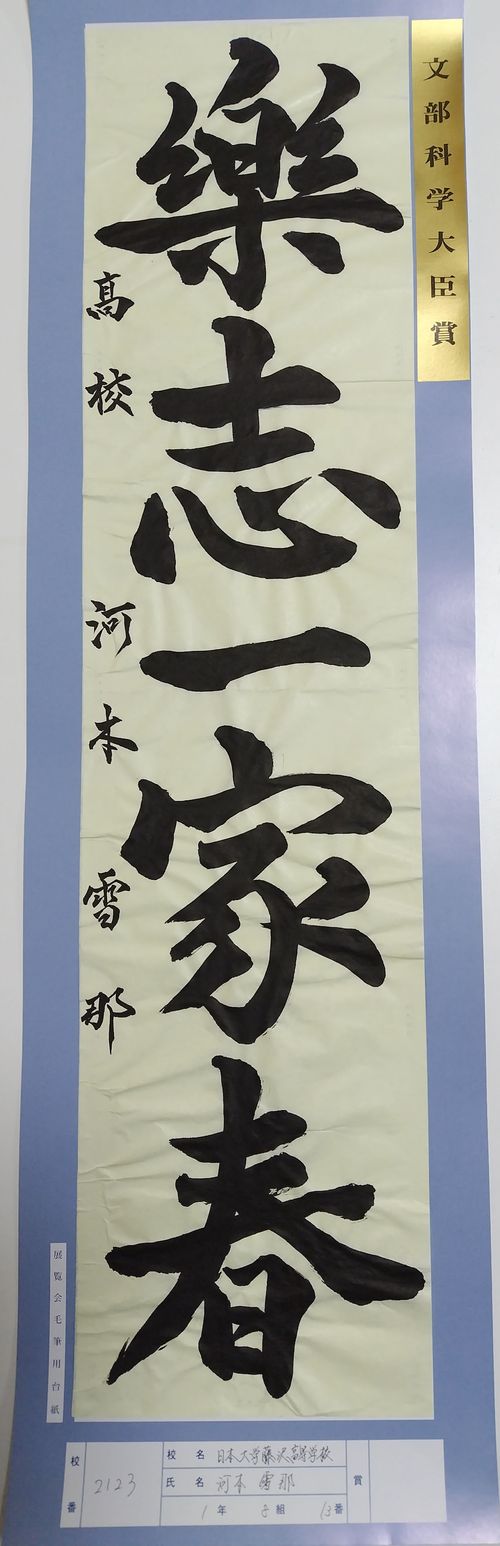 文部科学大臣賞
樂志一家春
高校 河本雪那
展覧会毛筆用台紙
校番 2123
校名 日本大学藤沢高等学校
氏名 河本 雪那
1年 8組 13番
賞